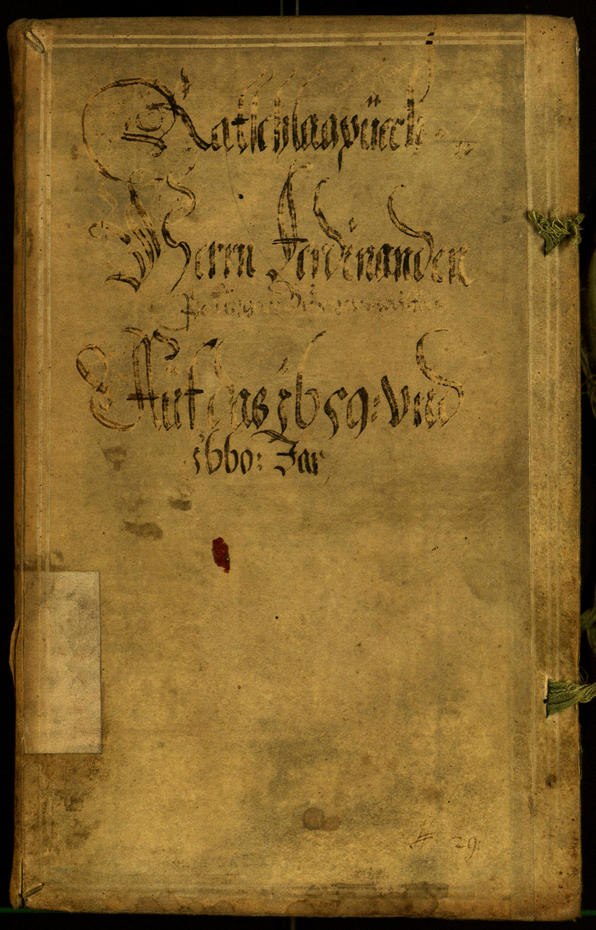 Ratschlagpüech
Herrn Ferdinanden
Auf das 1659: Vnd
1660: Jar
29.